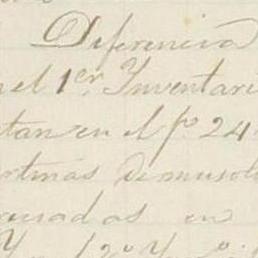 Diferencia
el 1er Inventari
tan en el fo 24
rtinas de musol
en